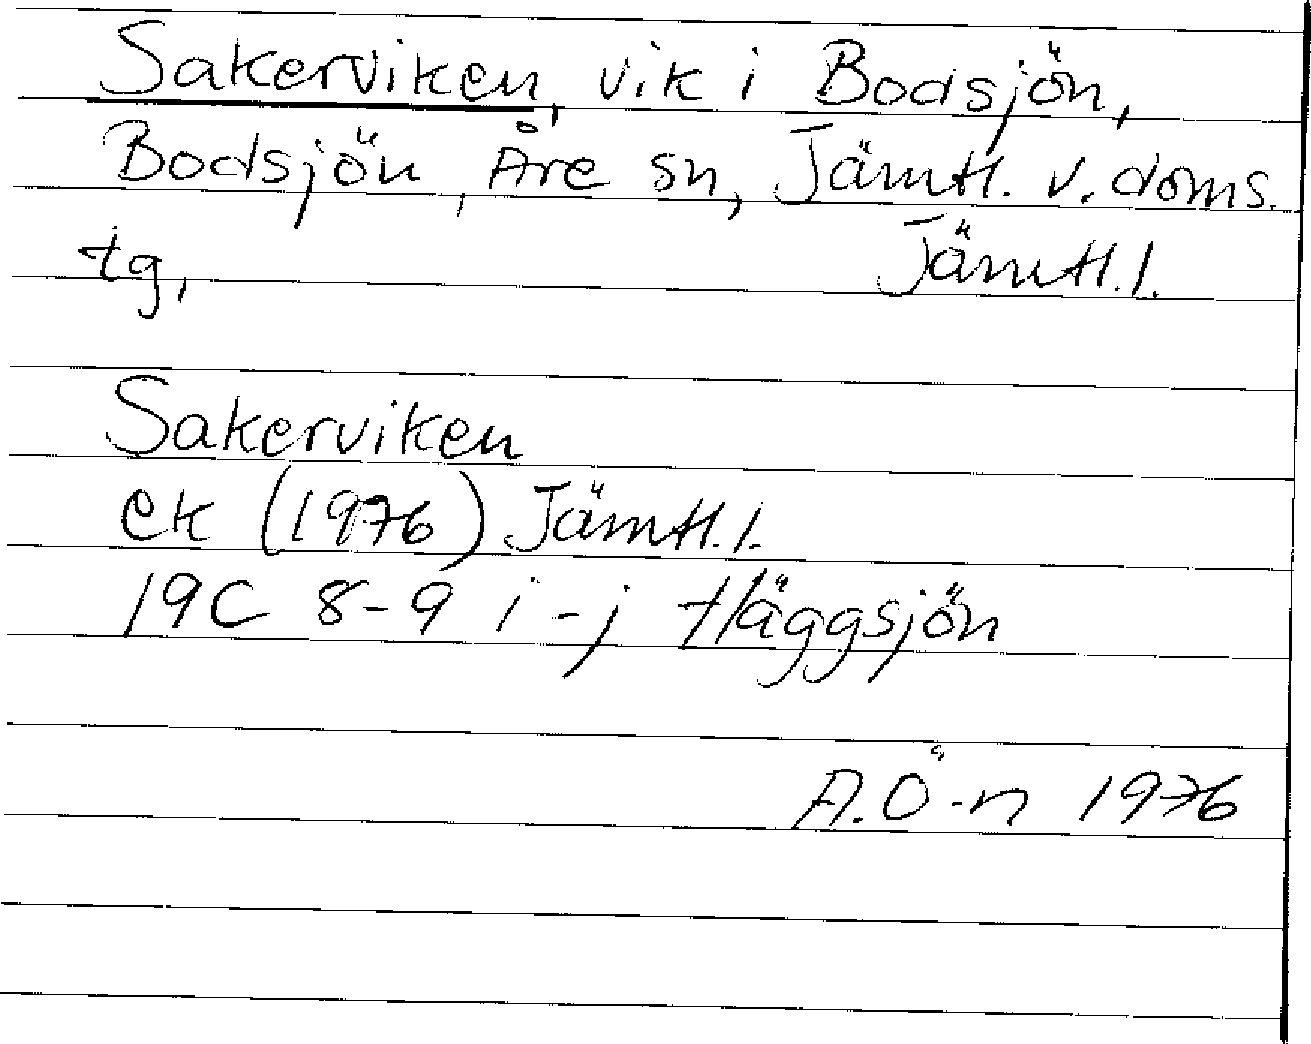 Sakerviken, vik i Bodsjön,
Bodsjön, Åre sn, Jämtl. v. doms.
tg, Jämtl. l.
Sakerviken
ek (1976) Jämtl. l.
19C 8-9 i-j Häggsjön
A.Ö-n 1976